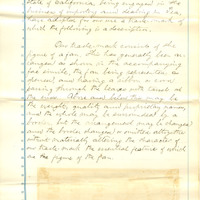 State of California, being engaged in the
business of making and dealing in
have adopted for our use a trade-mark of
which the following is a description.
Our trade-mark consists of the
figure of a fan. This has generally been ar-
ranged as shown in the accompanying
fac simile, the fan being
and having a ribbon or cord
passing through the leaves with tassels at
the ends. Above and below this may be
the weight, quality and
and the whole may be surrounded by a
border, but the arrangement may be changed
and the border changed or omitted altogether
without materially altering the character of
our trade-mark the essential feature of which
is the figure of the fan.